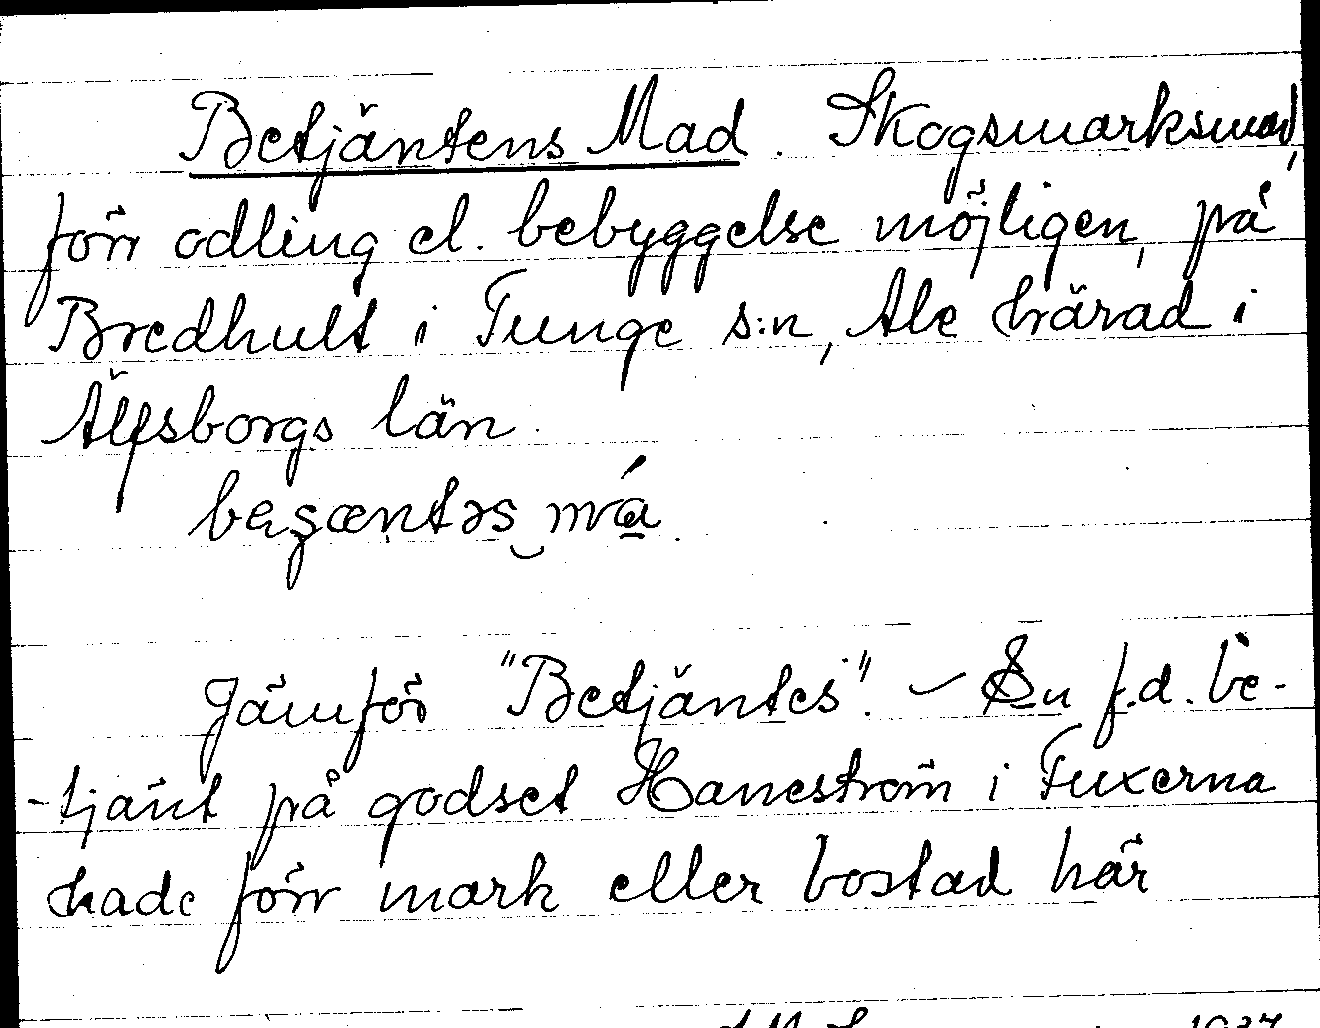 Betjäntens Mad. Skogsmarksmad,
förr odling el. bebyggelse möjligen, på
Bredhult i Tunge s:n, Ale härad i
Älfsborgs län.
Jämför "Betjäntes". En f.d. be-
-tjänt på godset Haneström i Fuxerna
hade förr mark eller bostad här
1937